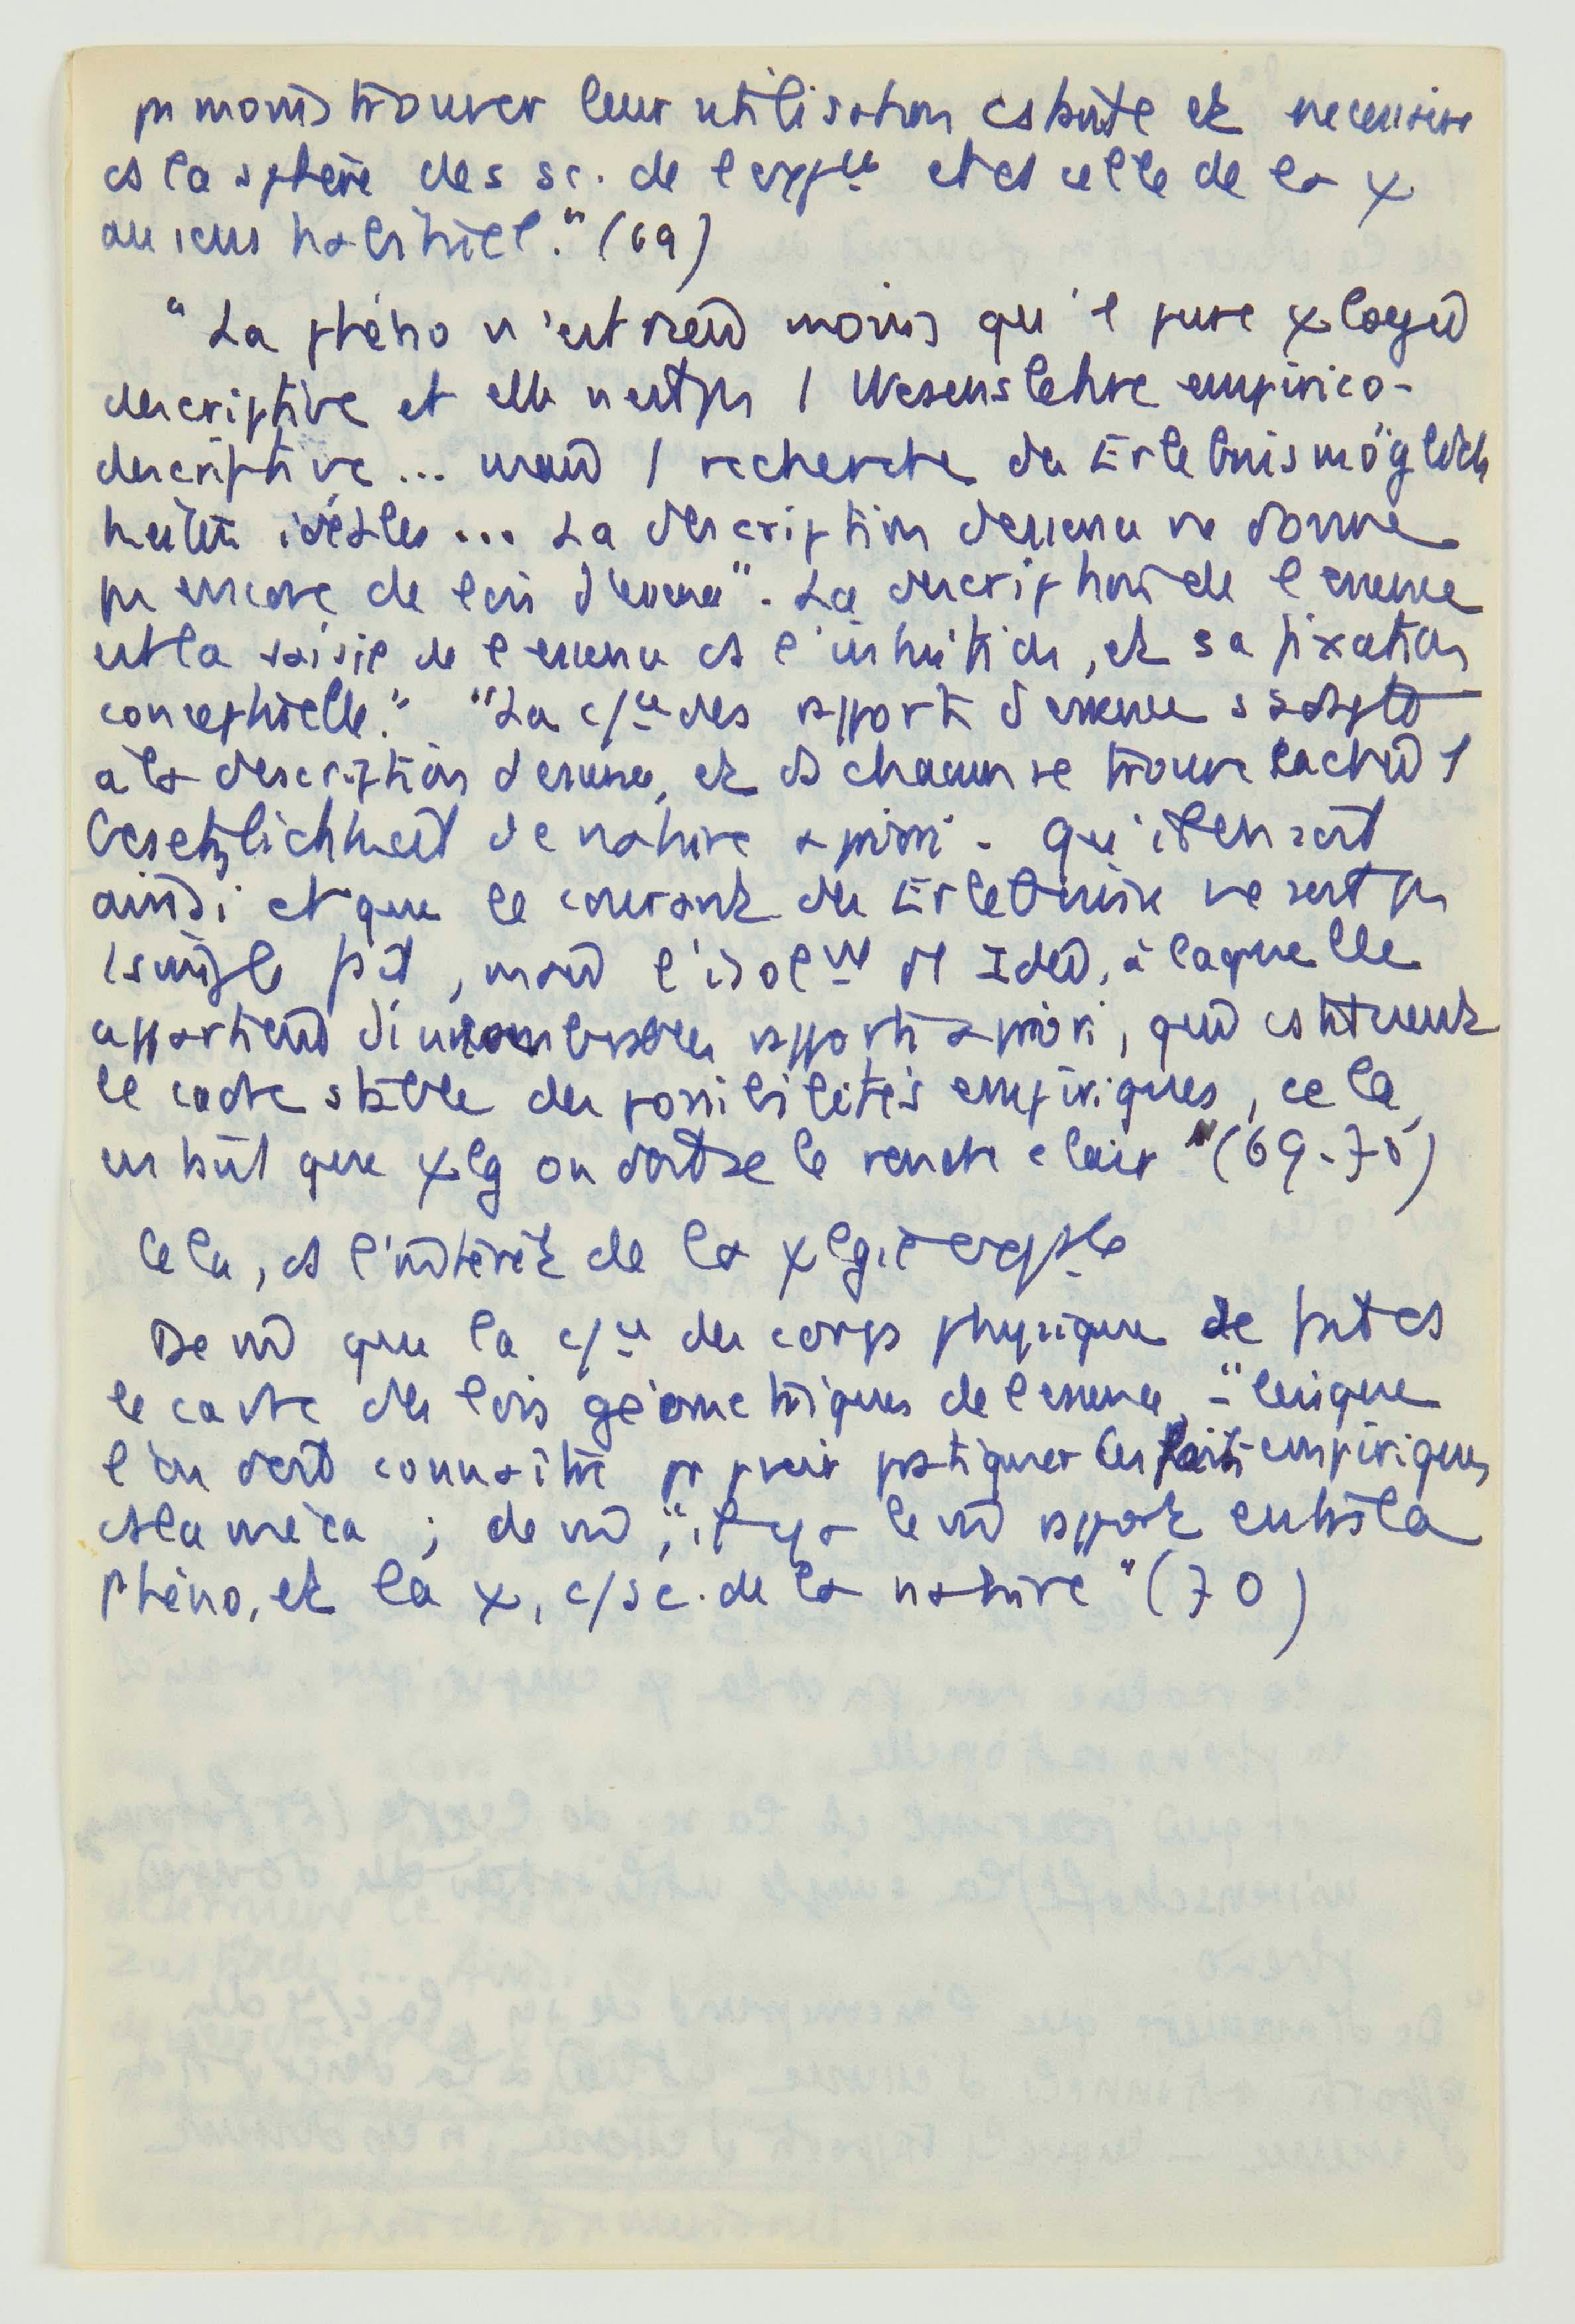 pr moins trouver leur utilisation cstante et necessaire
ds la sphère des sc. de l'expce et ds celle de la χ
au sens habituel." (69)
"La phéno n'est rien moins qu'1 pure χlogie
descriptive et elle n'est pas 1 Wesenslehre empirico-
descriptive... mais 1 recherche des Erlebnismöglich
keiten idéales ... La description d'essence ne donne
pas encore de lois d'essence". La description de l'essence
est la saisie de l'essence ds l'intuition, et sa fixation
conceptuelle." "La c/ce des rapports d'essence s'adapte
à la description d'essence, et ds chacun se trouve caché 1
Gesetzlichkeit de nature a priori. Qu'il en soit
ainsi et que le courant des Erlebnisse ne soit pas
1 simple fait, mais l'isolnt d'1 Idée, à laquelle
appartient d'innombrables rapports a priori, qui cstituent
le cadre stable des possibilités empiriques, cela
en tant que χlg on doit se le rendre clair" (69-70)
Cela, ds l'intérêt de la χlgie exptale
De m̄ que la c/ce des corps physiques se fait ds
le cadre des lois géométriques de l'essence, - "lesquelles
l'on doit connaître pr pvoir pratiquer les faits empiriques
ds la méca ; de m̄, "il y a le m̄ rapport entre la
phéno, et la χ, c/ sc. de la nature" (70)